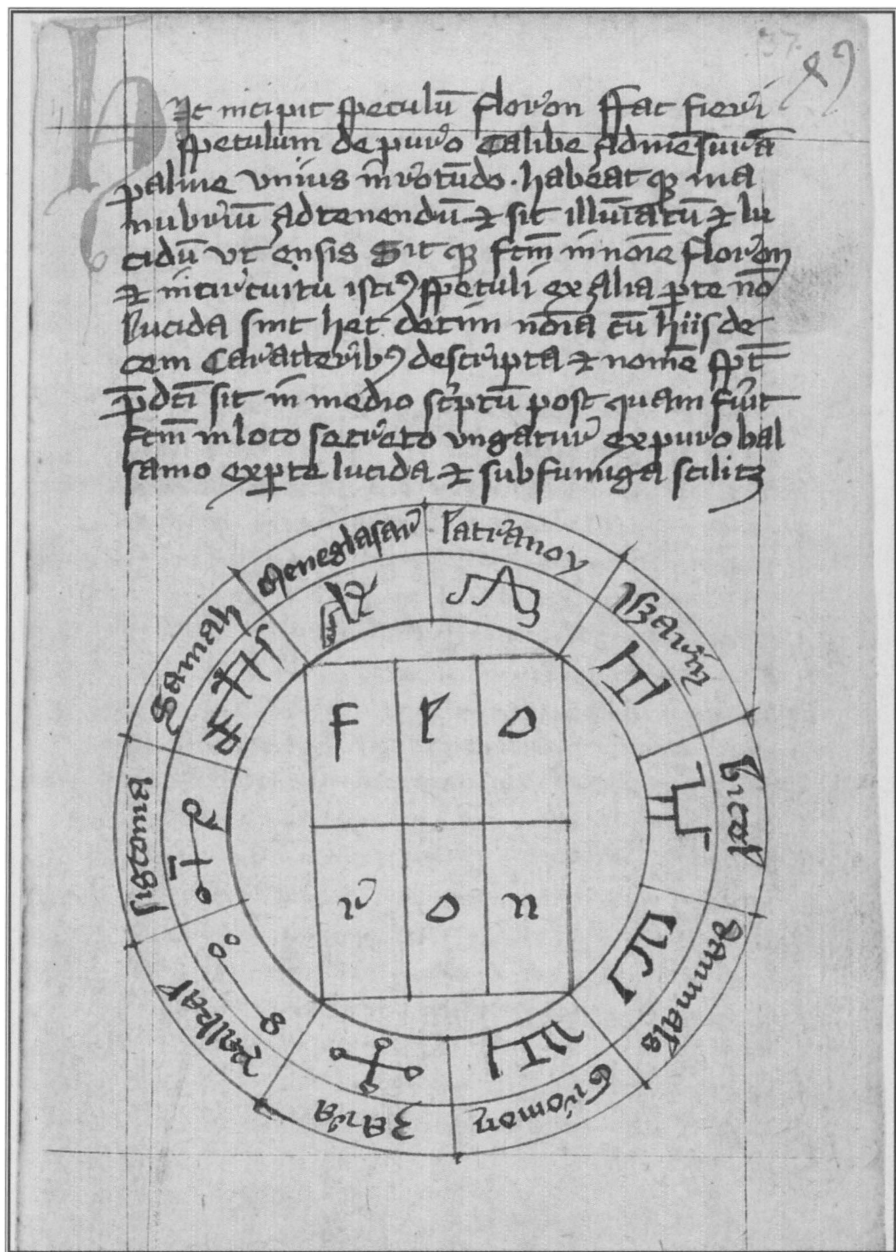 Hic incipit speculū floron ffac fieri
speculum de puro Calibe ad mēsurā
palme vnius in rotūdo. habeat qꝫ ma
nubriū ad tenendū & sit illuīatū & lu
cidū vt ensis Sit qꝫ fctm̄ in noīe floron
& in circuitu isti⁹ speculi ex alia ꝑte nō
lucida sint hec decim noīa cū hiis de
cem Caracterib⁹ descripta & nomē spc̄
p̄dc̄i sit in medio scʳptū post quam fuīt
fctm̄ in loco secreto vngatur ex puro bal
samo ex ꝑte lucida & subfumiga scilicꝫ
Meneglasar
latranoy
bicol
Gromon
zara
Samah
F l o
r o n